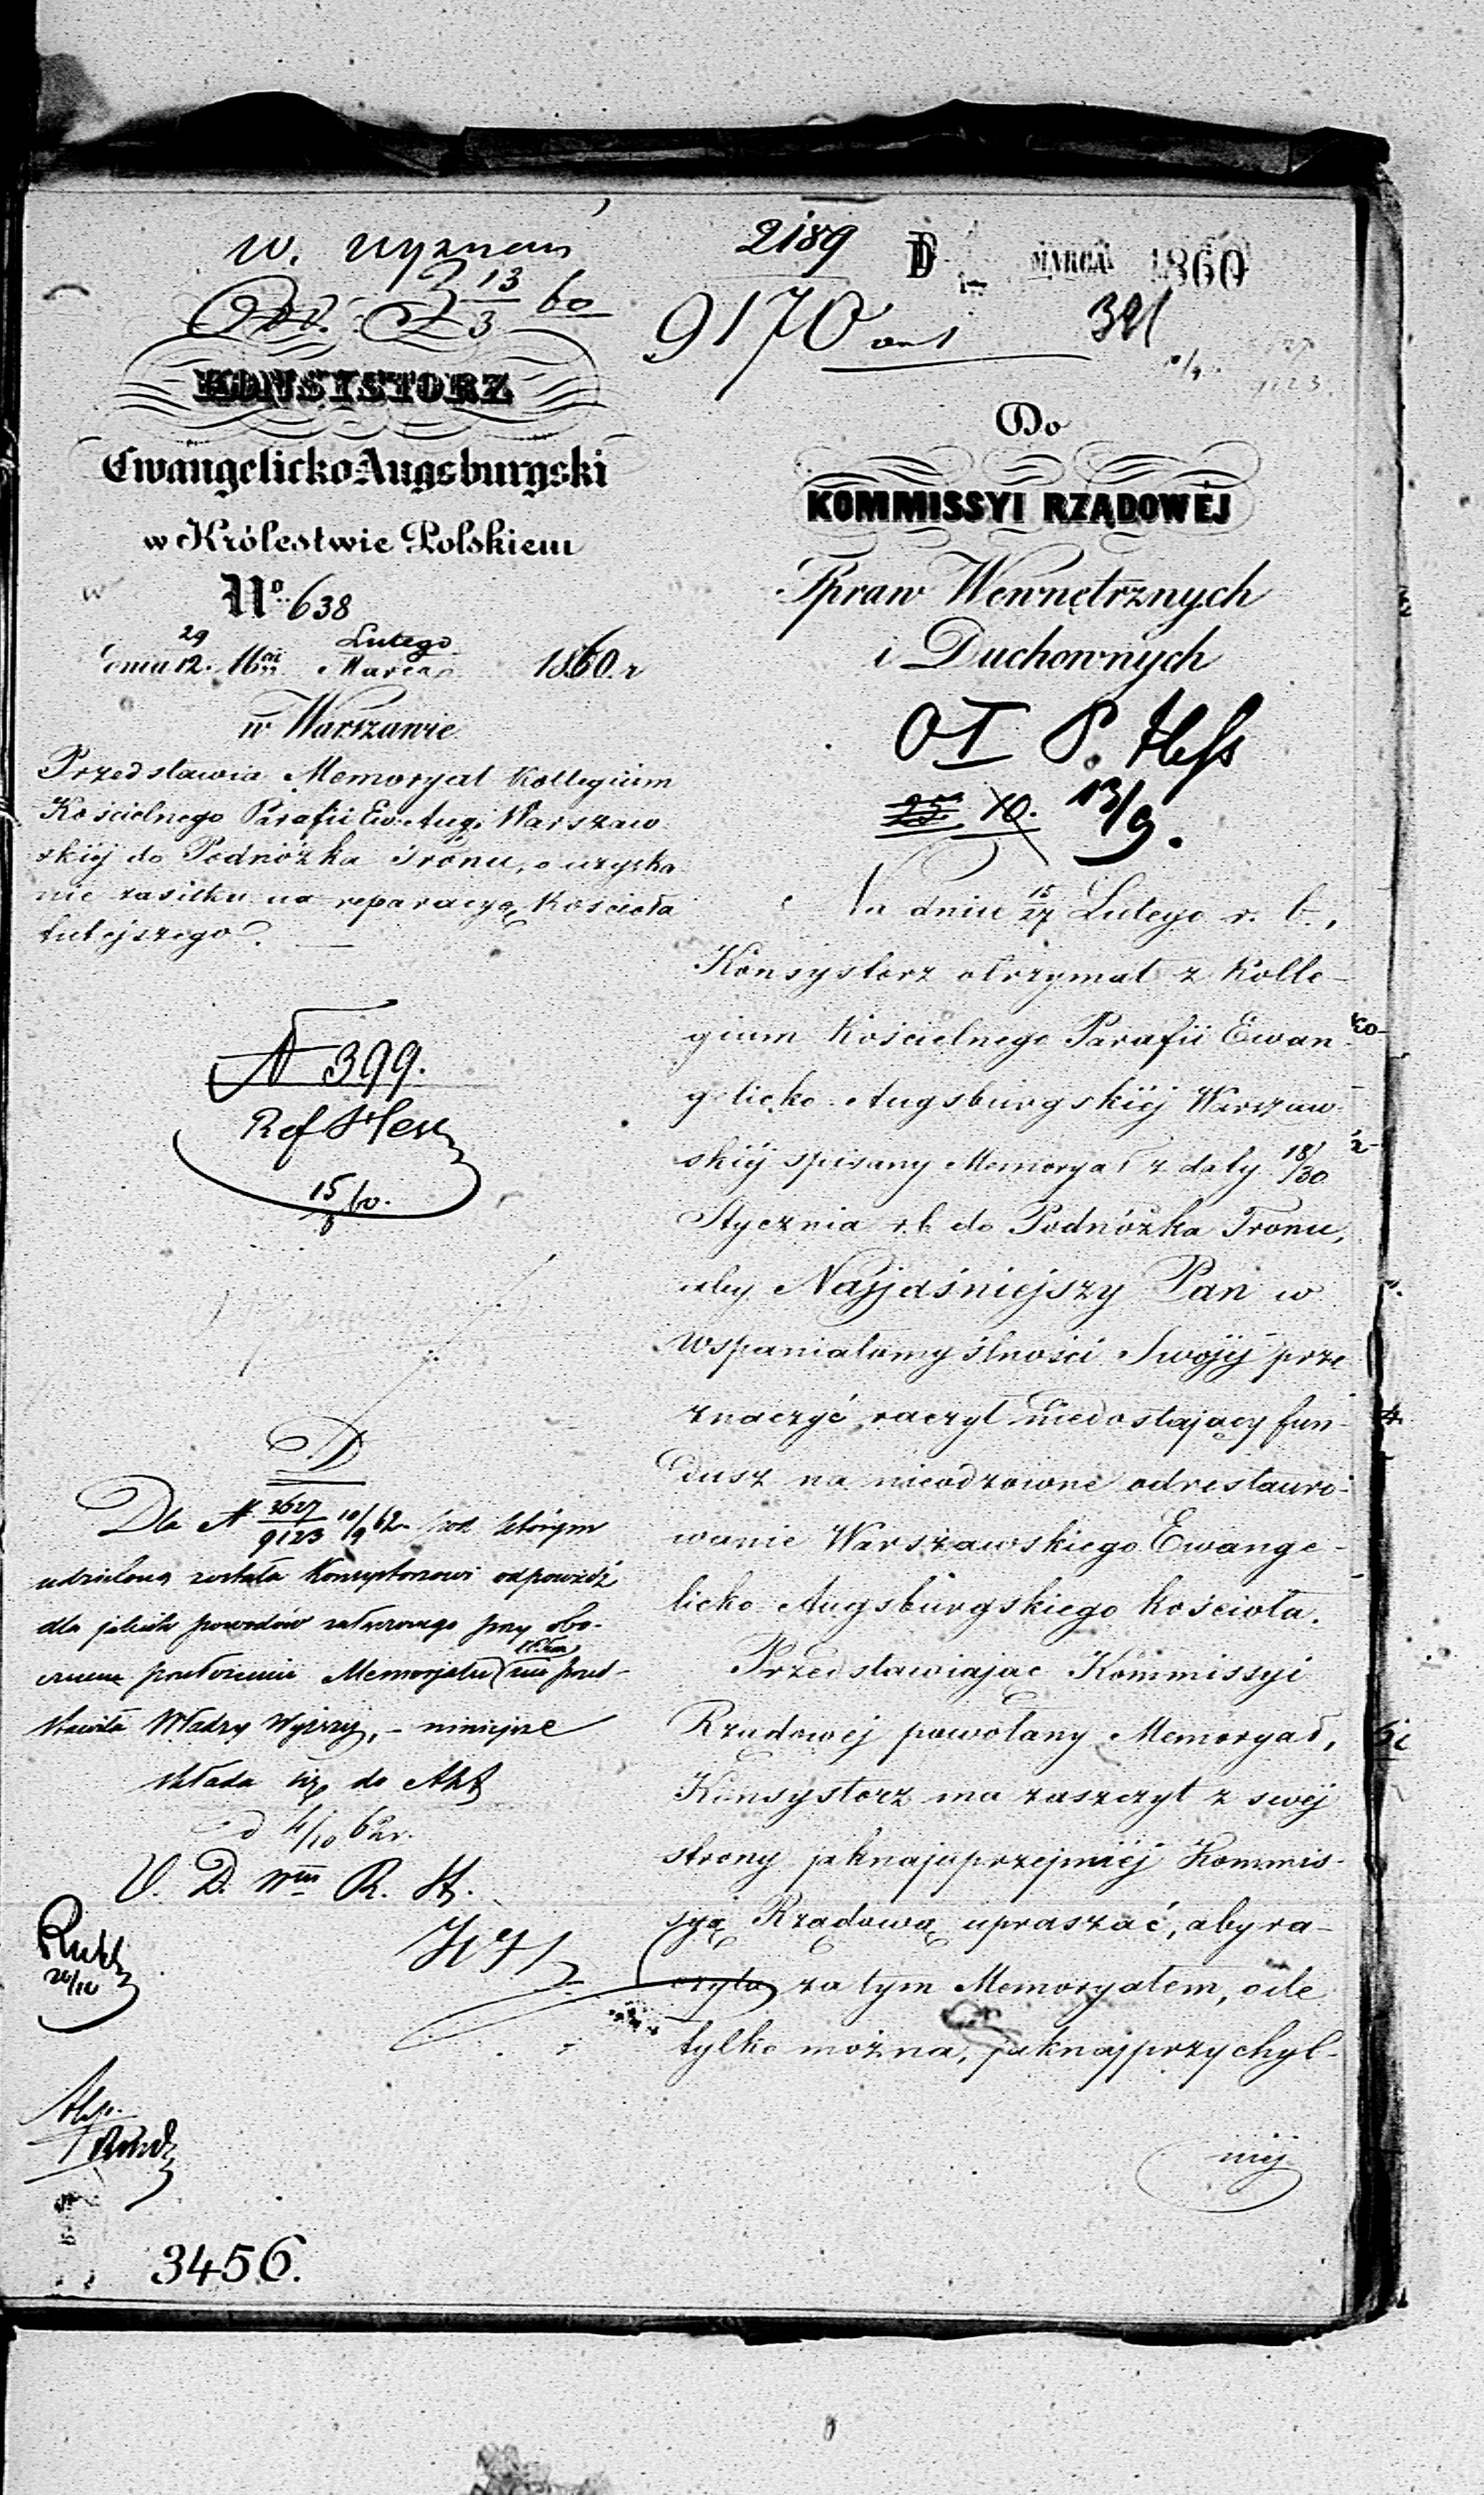 W. wyznań
13/3 60
KONSYSTORZ
Ewangelicko-Augsburgski
w Królestwie Polskiem
Nº 638
29 Lutego
dnia 12. Marca 1860. r
w Warszawie
Przedstawia Memoryał Kollegium
Kościelnego Parafii Ew. Aug. Warszaw
skiéj do Podnóżka Tronu, o uzyska
nie zasiłku na reparacyę Kościoła
tutejszego.
N 399.
Ref Hess
15/3 60.
D
Dla N 2627/9123 10/9 62 pod którym
udzieloną została Konsystorzowi odpowiedź
dla jakich powodów załączonego przy obe-
cnem przełożeniu Memoryału nie przed-
stawiła Władzy Wyższéj, – niniejsze
składa się do Akt
d 4/10 62 r.
V. D. R. St.
3456.
2189
D MARCA 1860
9170
391
Do
KOMMISSYI RZĄDOWÉJ
Spraw Wewnętrznych
i Duchownych
OI P. Hess
13/9.
Na dniu 15/27 Lutego r. b.,
Konsystorz otrzymał z Kolle-
gium Kościelnego Parafii Ewan-
gelicko-Augsburgskiéj Warszaw-
skiéj spisany Memoryał z daty 18/30
Stycznia r. b. do Podnóżka Tronu,
aby Najjaśniejszy Pan w
wspaniałomyślności Swojéj prze
znaczyć raczył niedostający fun-
dusz na nieodzowne odrestauro-
wanie Warszawskiego Ewange-
licko-Augsburgskiego Kościoła.
Przedstawiając Kommissyi
Rządowéj powołany Memoryał,
Konsystorz ma zaszczyt z swéj
strony jaknajuprzejmiéj Kommis-
syą Rządową upraszać, aby ra-
czyła za tym Memoryałem, o ile
tylko można, jaknajprzychyl-
niéj